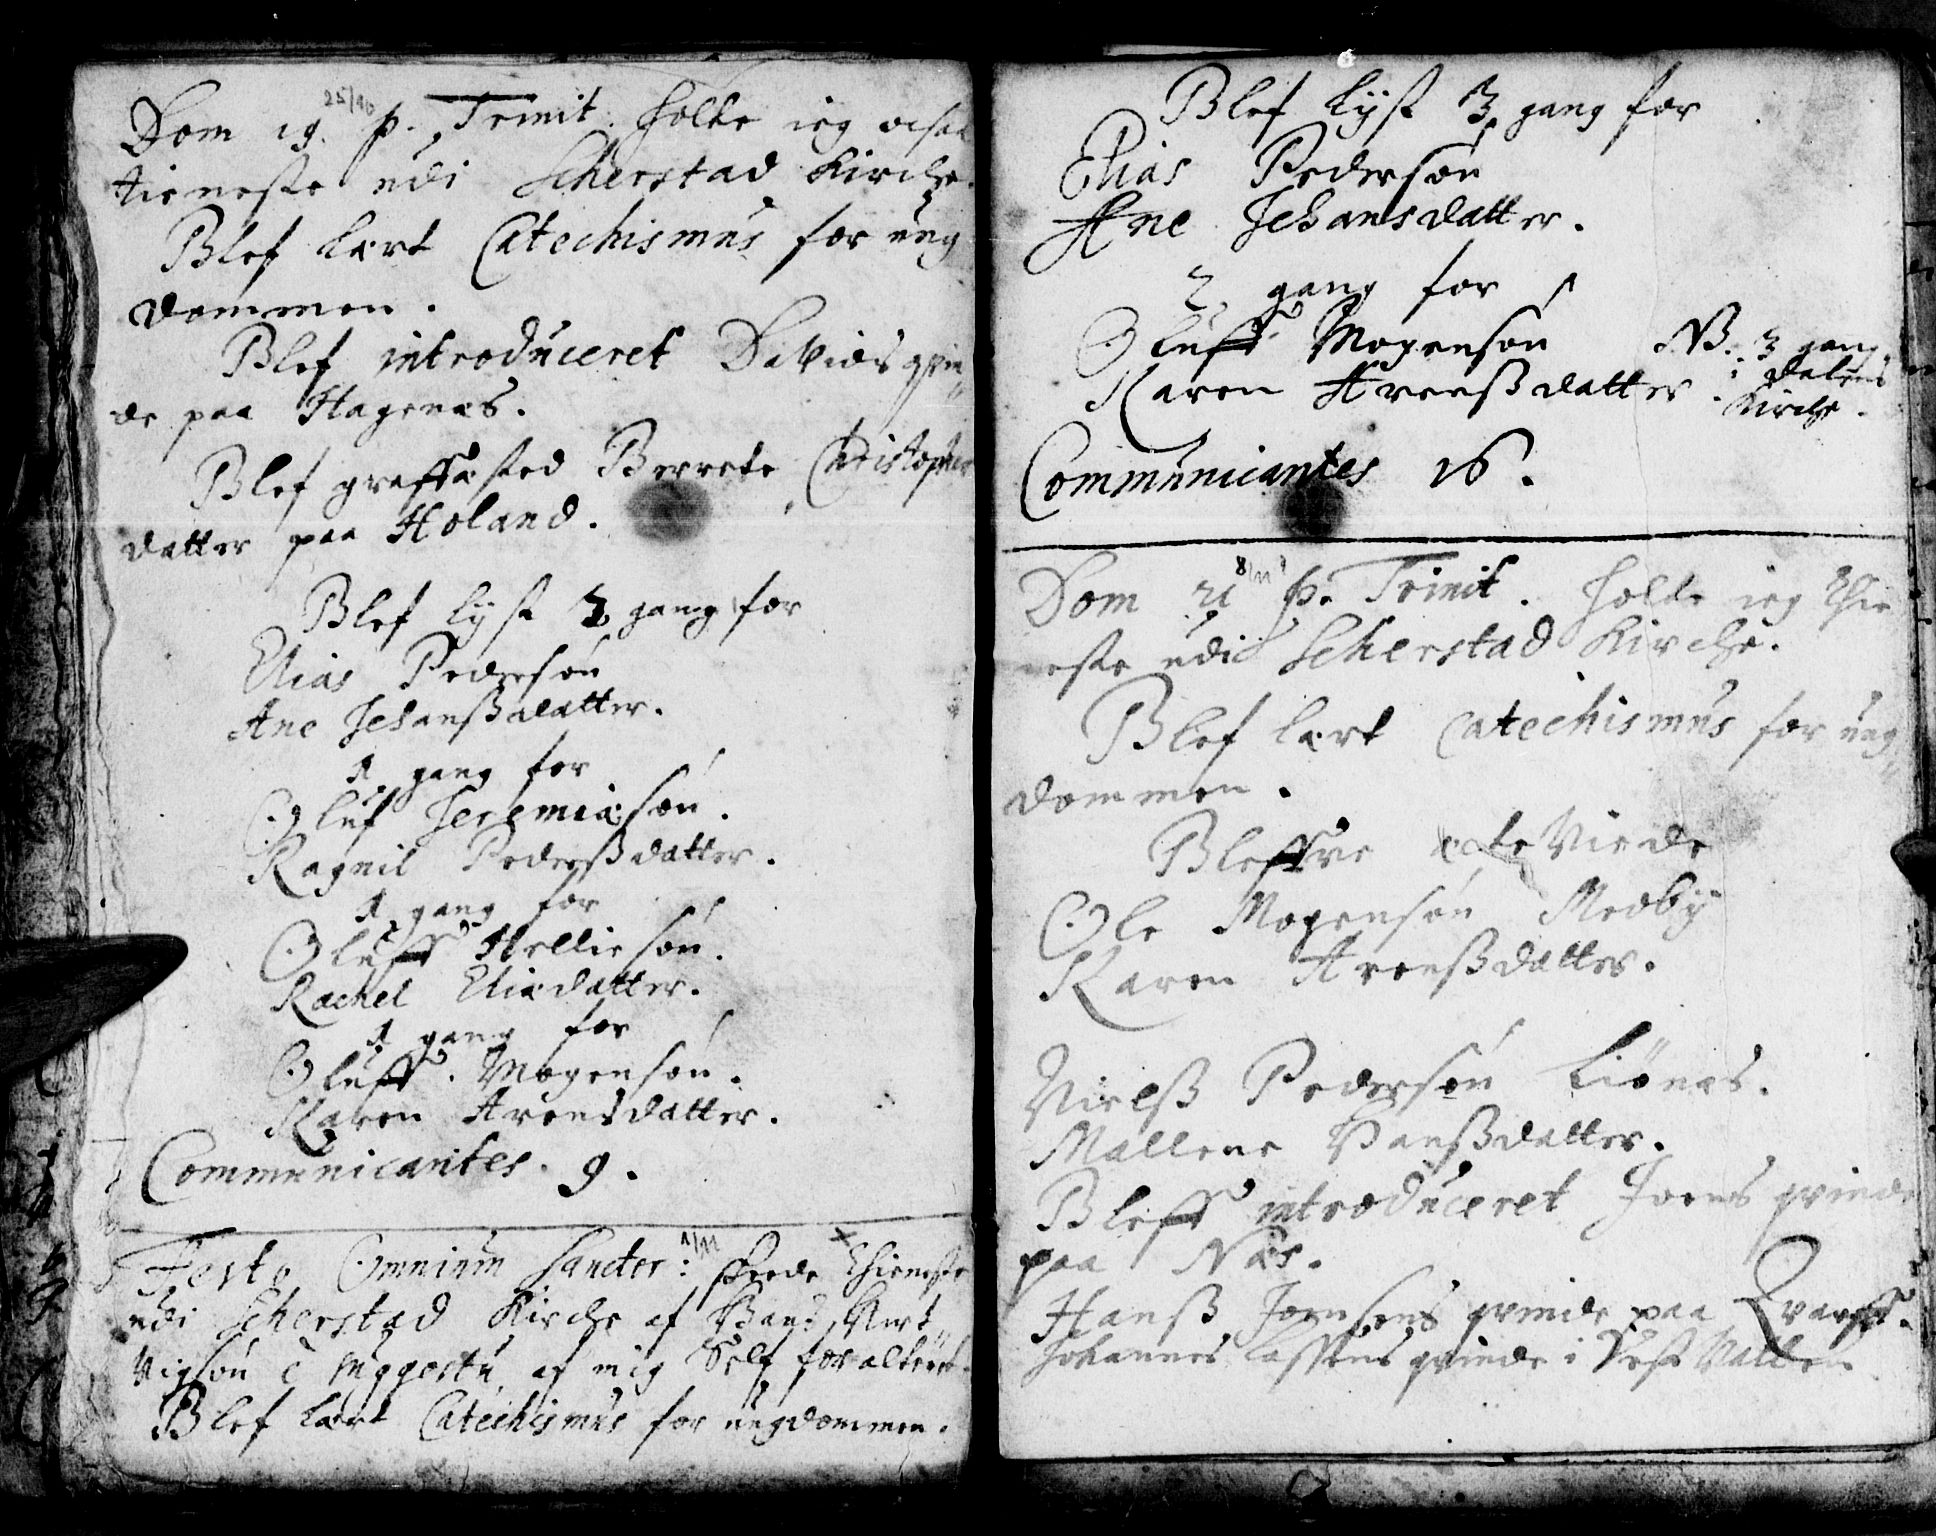 25/10
Dom 19. p. Trinit. holte ieg ocsaa
tieneste udi Scherstad Kirche.
Blef lært Catechismus for ung
dommen.
Blef introduceret Davids qvin
de paa Hagenæs.
Blef græffæsted Berrete Christophers
datter paa Holand.
Blef lyst 3 gang for
Elias Pedersøn
Ane Jehanßdatter.
1 gang for
Oluf Jeremiæsøn.
Ragnil Pederßdatter.
1 gang for
Oluff Helliesøn.
Rachel Eliædatter.
1 gang for
Oluff Mogensøn.
Karen Arensdatter.
Communicantes. 9.
Festo Omnium Sanctor: 1/11 skede thieneste
udi Scherstad Kirche af Hans Hart
vigsøn è suggestu, af mig Self for alteret.
Blef lært Catechismus for ungdommen.
Blef lyst 3 gang for
Elias Pedersøn
Ane Jehansdatter.
2 gang for
Oluff Mogensøn
Karen Arenßdatter.
NB. 3 gang
i dalens
Kirche.
Communicantes 16.
8/11
Dom 21 p. Trinit. holte ieg thie
neste udi Scherstad Kirche.
Blef lært Catechismus for ung
dommen.
Bleffve ecte Viede
Ole Mogensøn Medbÿ
Karen Arenßdatter.
Nielß Pedersøn Liønæs.
Mallene Hanßdatter.
Bleff introduceret Joens qvinde
paa Næs.
Hanß Joensøns qvinde paa Qvarff.
Johannes Lassens qvinde i Vest Vallen